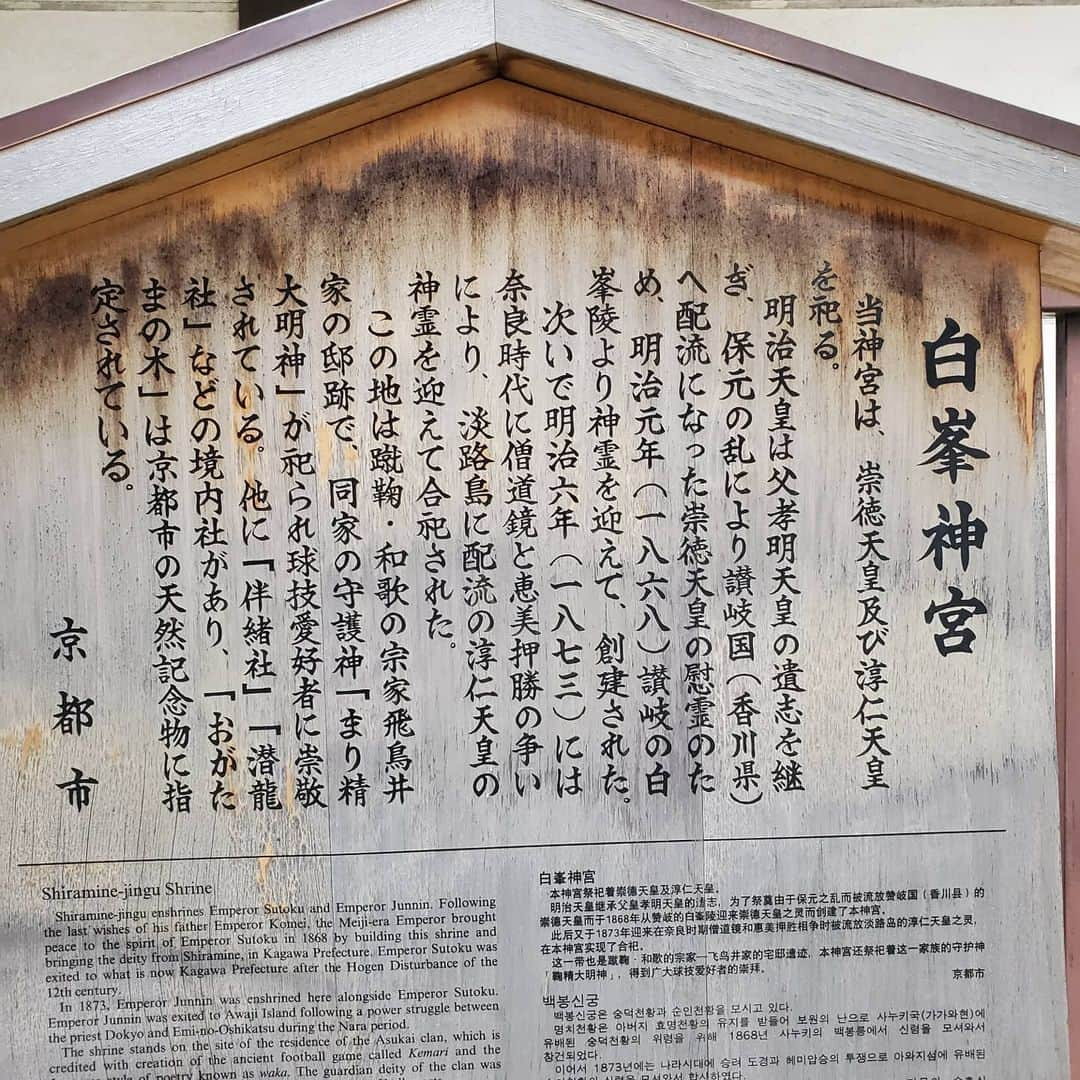 白峯神宮
当神宮は、崇徳天皇及び淳仁天皇
を祀る。
明治天皇は父孝明天皇の遺志を継
ぎ、保元の乱により讃岐国（香川県）
へ配流になった崇徳天皇の慰霊のた
め、明治元年（一八六八）讃岐の白
峯陵より神霊を迎えて、創建された。
次いで明治六年（一八七三）には
奈良時代に僧道鏡と恵美押勝の争い
により、淡路島に配流の淳仁天皇の
神霊を迎えて合祀された。
この地は蹴鞠・和歌の宗家飛鳥井
家の邸跡で、同家の守護神「まり精
大明神」が祀られ球技愛好者に崇敬
されている。他に「伴緒社」「潜龍
社」などの境内社があり、「おがた
まの木」は京都市の天然記念物に指
定されている。
京都市
Shiramine-jingu Shrine
Shiramine-jingu enshrines Emperor Sutoku and Emperor Junnin. Following
the last wishes of his father Emperor Komei, the Meiji-era Emperor brought
peace to the spirit of Emperor Sutoku in 1868 by building this shrine and
bringing the deity from Shiramine, in Kagawa Prefecture. Emperor Sutoku was
exited to what is now Kagawa Prefecture after the Hogen Disturbance of the
12th century.
In 1873, Emperor Junnin was enshrined here alongside Emperor Sutoku.
Emperor Junnin was exited to Awaji Island following a power struggle between
the priest Dokyo and Emi-no-Oshikatsu during the Nara period.
The shrine stands on the site of the residence of the Asukai clan, which is
credited with creation of the ancient football game called Kemari and the
style of poetry known as waka. The guardian deity of the clan was
白峯神宫
本神宫祭祀着崇德天皇及淳仁天皇。
明治天皇继承父皇孝明天皇的遗志，为了祭奠由于保元之乱而被流放赞岐国（香川县）的
崇德天皇而于1868年从赞岐的白峯陵迎来崇德天皇之灵而创建了本神宫。
此后又于1873年迎来在奈良时期僧道镜和惠美押胜相争时被流放淡路岛的淳仁天皇之灵，
在本神宫实现了合祀。
这一带也是蹴鞠·和歌的宗家—飞鸟井家的宅邸遗迹，本神宫还祭祀着这一家族的守护神
「鞠精大明神」，得到广大球技爱好者的崇拜。
京都市
백봉신궁
백봉신궁은 숭덕천황과 순인천황을 모시고 있다.
명치천황은 아버지 효명천황의 유지를 받들어 보원의 난으로 사누키국(가가와현)에
유배된 숭덕천황의 위령을 위해 1868년 사누키의 백봉릉에서 신령을 모셔와서
창건되었다.
이어서 1873년에는 나라시대에 승려 도경과 헤미압승의 투쟁으로 아와지섬에 유배된